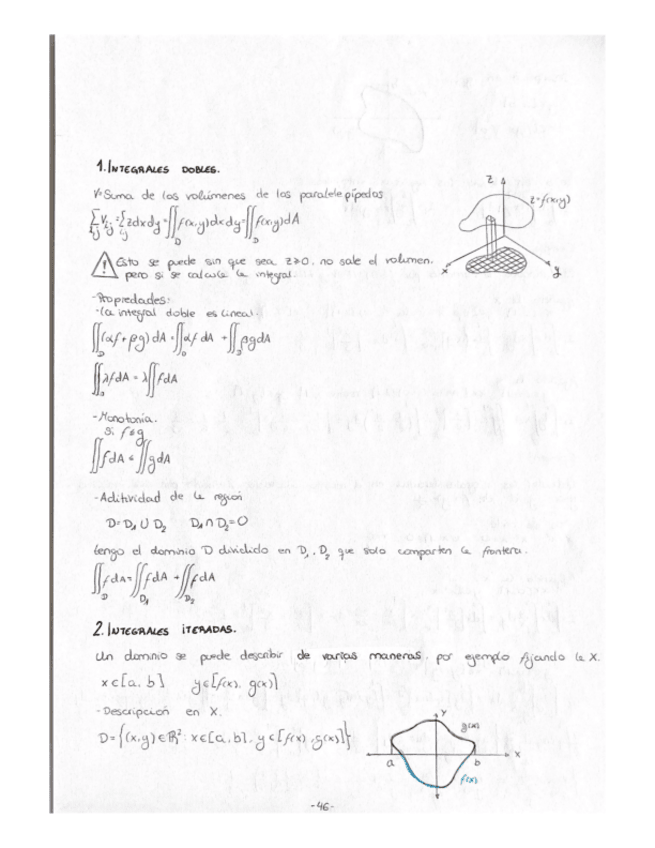 1. INTEGRALES DOBLES.
V= Suma de los volúmenes de los paralelepípedos
∑_{i,j} V_{ij} = ∑_{ij} z dx dy = ∬_D f(x,y) dx dy = ∬_D f(x,y) dA
z
z=f(x,y)
x
y
Esto se puede sin que sea z≥0, no sale el volumen,
pero si se calcula la integral.
-Propiedades:
-La integral doble es lineal.
∬_D (αf + βg) dA = ∬_D αf dA + ∬_D βg dA
∬_D λf dA = λ∬ f dA
-Monotonía.
Si f≤g
∬ f dA ≤ ∬ g dA
-Aditividad de la región
D= D₁ ∪ D₂ D₁ ∩ D₂ = O
tengo el dominio D dividido en D₁, D₂ que solo comparten la frontera.
∬_D f dA = ∬_{D₁} f dA + ∬_{D₂} f dA
2. INTEGRALES ITERADAS.
Un dominio se puede describir de varias maneras, por ejemplo fijando la X.
x∈[a, b] y∈[f(x), g(x)]
-Descripción en X.
D= {(x,y) ∈ ℝ²: x∈[a, b], y∈[f(x), g(x)]}
Y
g(x)
a
b
X
f(x)
-46-